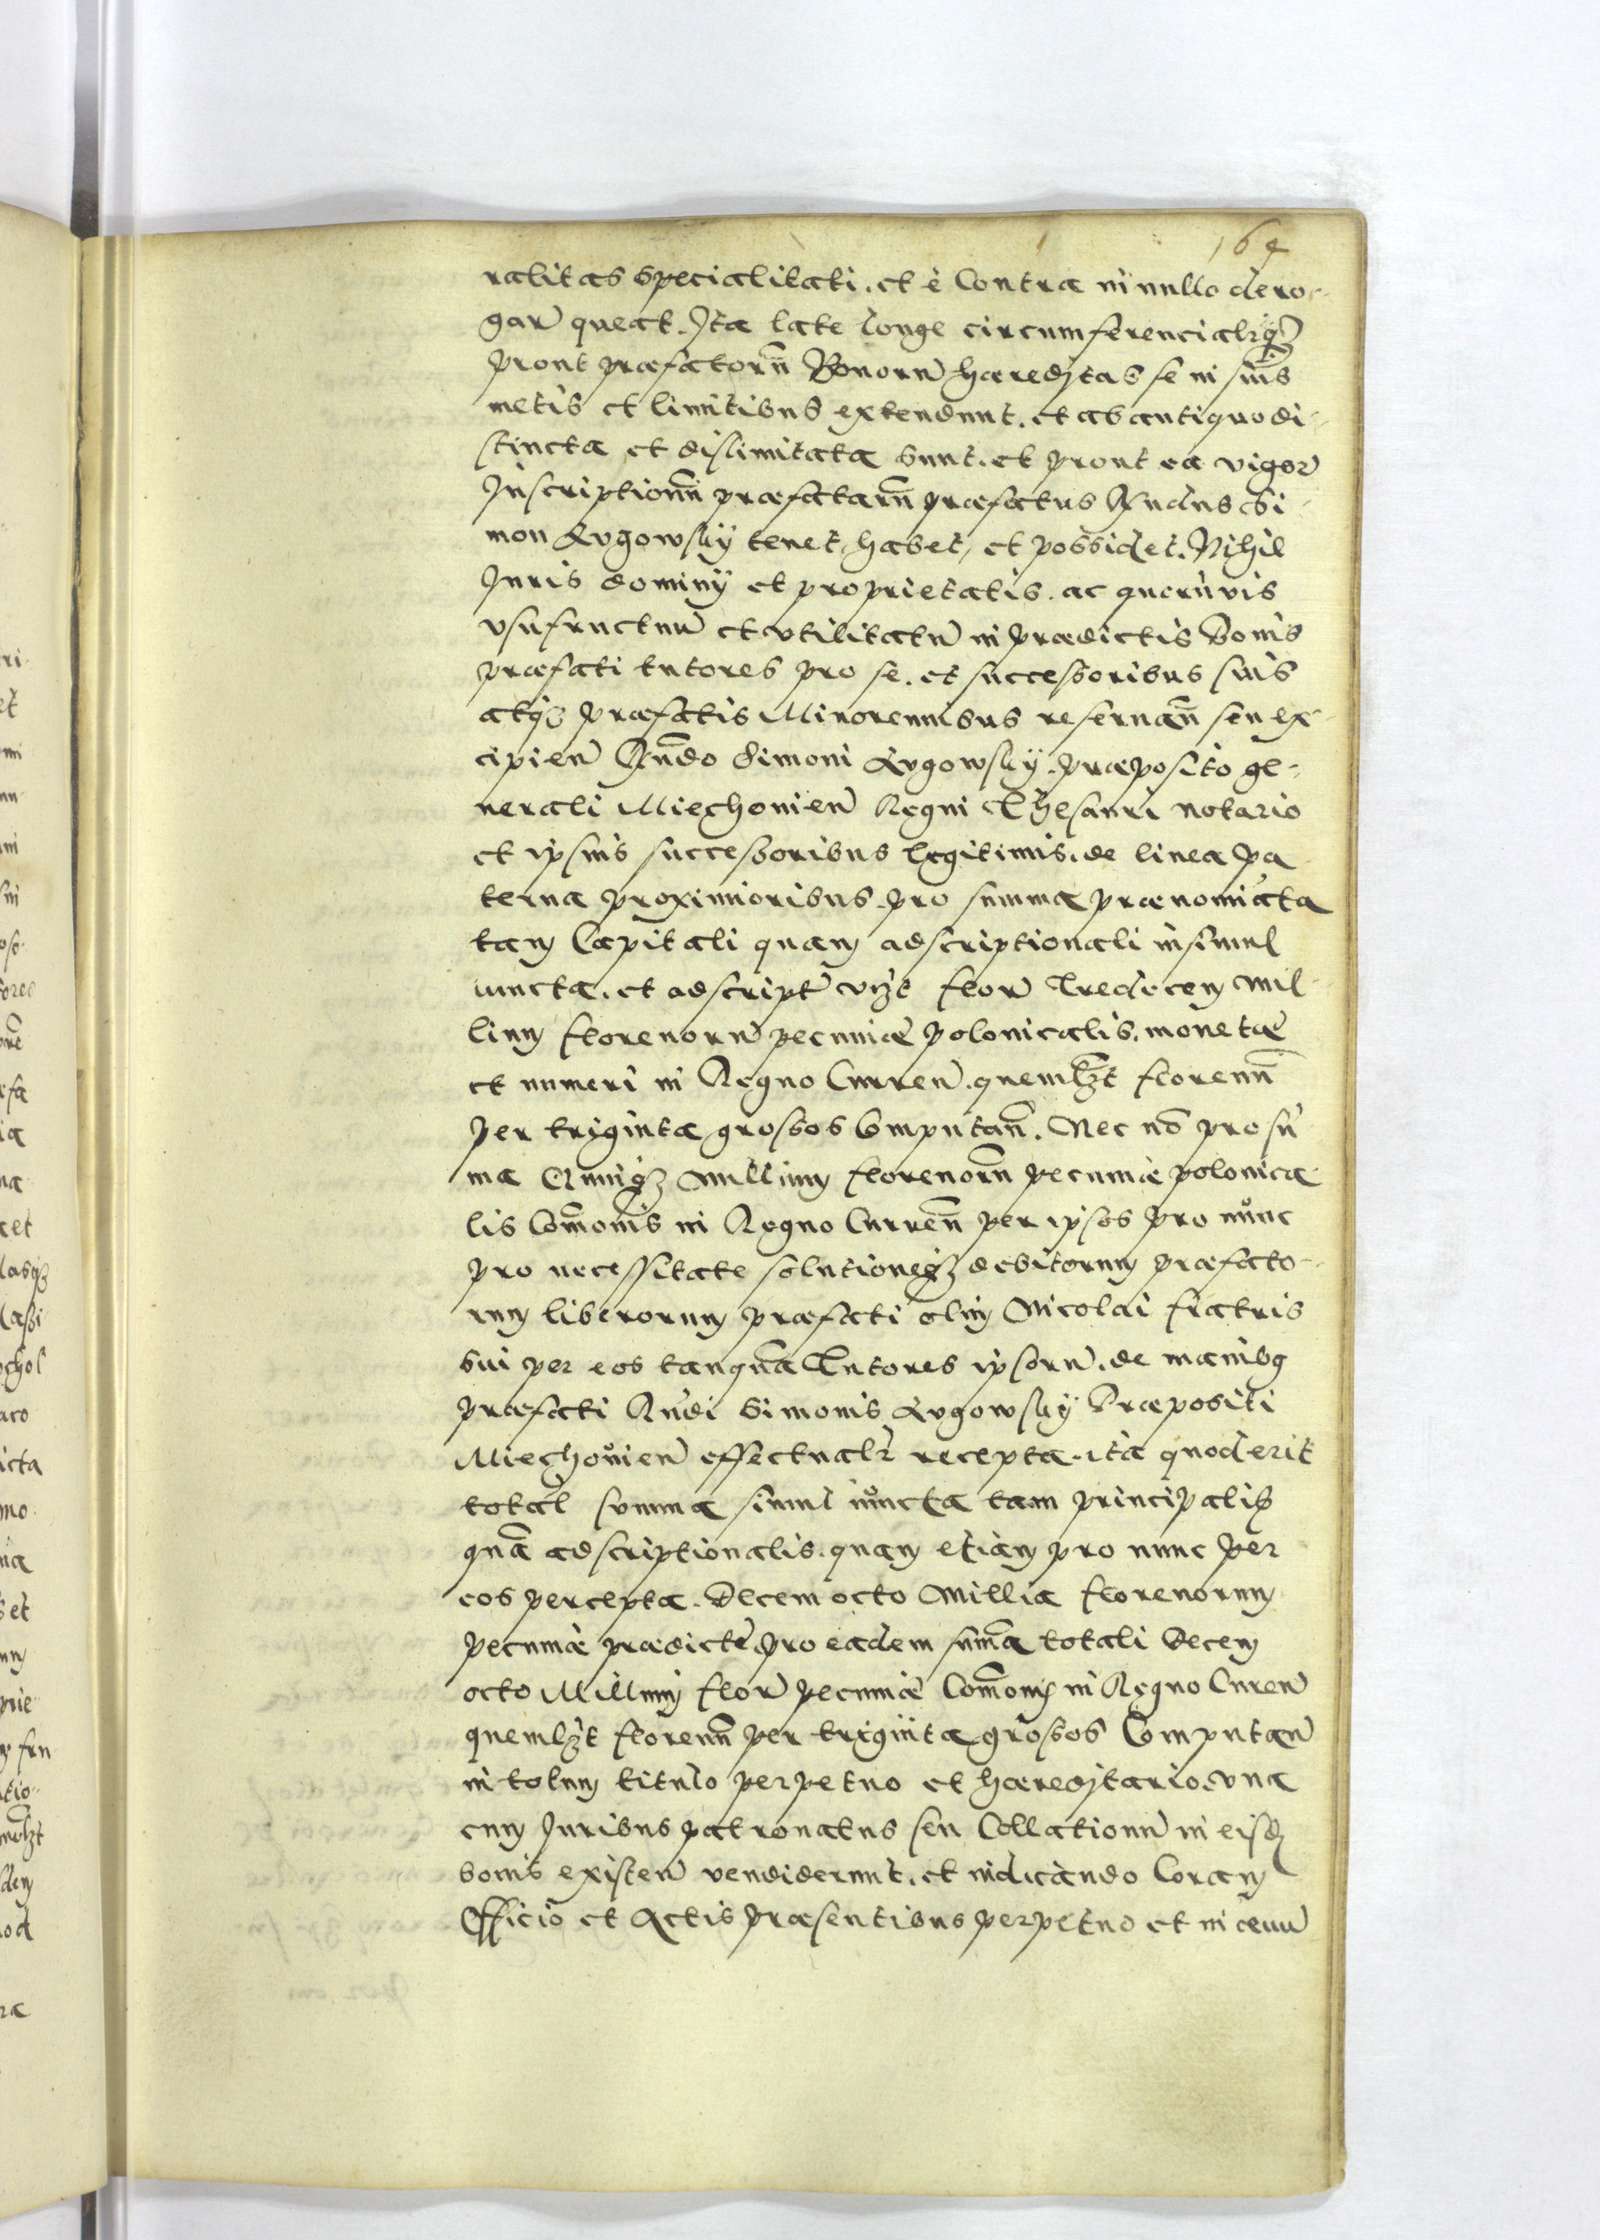 164
ralitas specialitati. et è contra in nullo dero-
gar̃ queat. Ita late longe circumferencialr̃q̃ʒ
prout præfatorũ Bonorũ hæreditas se in suis
metis et limitibus extendunt. et ab antiquo di-
stincta et dislimitata sunt. et prout ea vigor̃
Inscriptionũ præfatarũ præfatus Rñdus Si-
mon Lvgowsky tenet, habet, et possidet. Nihil
Juris dominij et proprietatis. ac quorũvis
vsufructuũ et vtilitatũ in prædictis bonis
præfati tutores pro se. et successoribus suis
atqʒ præfatis Minorennibus reseruañ seu ex-
cipieñ Rñdo Simoni Lvgowsky. præposito ge-
nerali Miechovieñ Regni Thesauri notario
et ipsius successoribus legitimis. de linea pa
terna proximioribus. pro summa prænomiata
tam Capitali quam adscriptionali insimul
iuncta. et adscript̃ vizt flor̃ Tredecem mil-
lium florenorũ pecuniæ polonicalis. monetæ
et numeri in Regno Curreñ. quemlʒt florenũ
per triginta grossos Computañ. Nec nõ pro sũ
ma Quinqʒ millium florenorũ pecuniæ polonica-
lis Com̃onis in Regno Curreñ per ipsos pro nunc
pro necessitate solutioneqʒ debitorum præfato-
rum liberorum præfati olim Nicolai fratris
sui per eos tanquã Tutores ipsorũ. de manibq
præfati Rñdi Simonis Lvgowsky Præpositi
Miechovieñ effectualr̃ recepta. ita quod erit
total̃ summa simul iuncta tam principalis
quã adscriptionalis. quam etiam pro nunc per
eos percepta. Decem octo Millia florenorum
pecuniæ prædictæ. pro eadem sum̃a totali Decem
octo Millium flor̃ pecuniæ Com̃onis in Regno Cureñ
quemlʒt florenũ per triginta grossos Computañ
in totum titulo perpetuo et hæreditario. vna
cum Juribus patronatus seu Collationũ in eisdẽ
bonis existeñ vendiderunt. et iudicando Coram
Officio et Actis præsentibus perpetuo et in æuũ